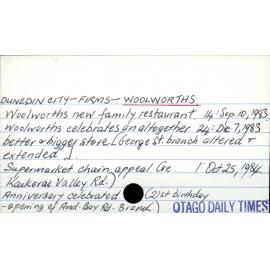 DUNEDIN CITY - FIRMS - WOOLWORTHS
Woolworths new family restaurant 14: Sep. 10, 1983
Woolworths celebrates [an altogether 24: Dec 7, 1983
better & bigger store [George St. branch altered &
extended].
Supermarket chain appeal (re. 1: Oct 25, 1984
Kaikorai Valley Rd.)
Anniversary celebrated (21st birthday
- opening of And. Bay Rd. Branch)
OTAGO DAILY TIMES